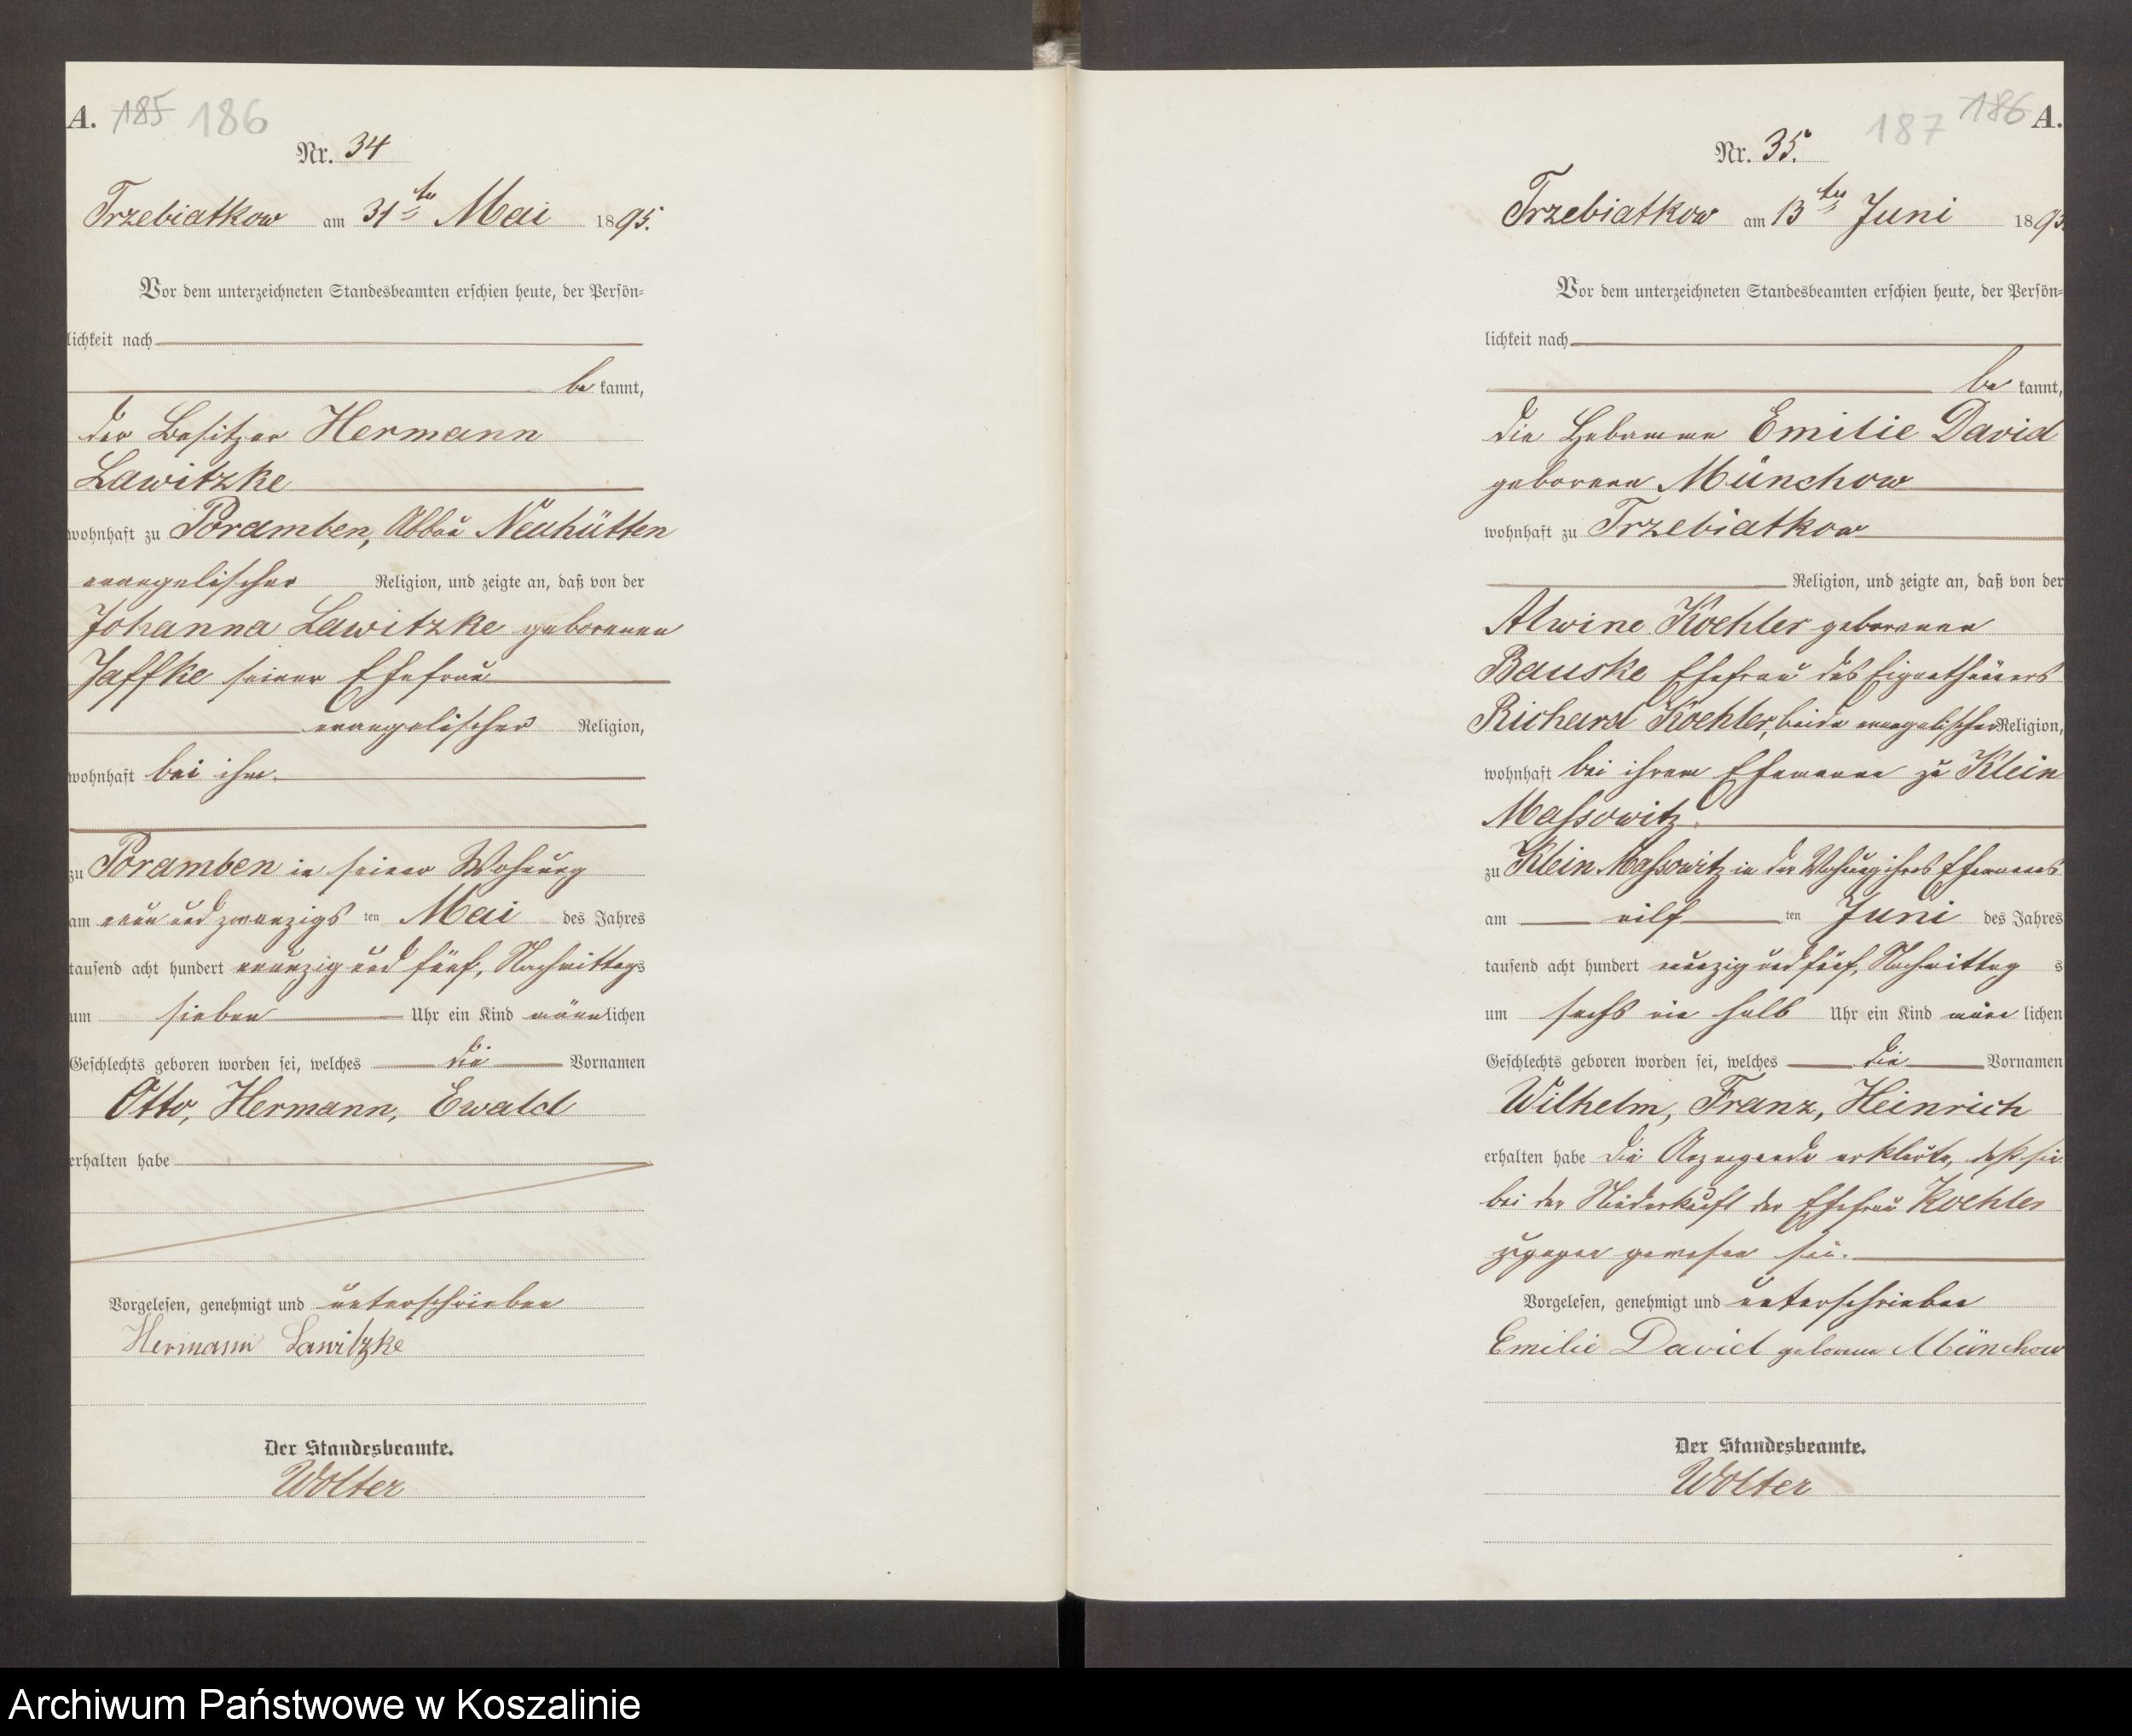 A. 185 186
Nr. 34
Trzebiatkow am 31ten Mai 1895.
Vor dem unterzeichneten Standesbeamten erschien heute, der Persön-
lichkeit nach
be kannt,
der Besitzer Hermann
Lawitzke
wohnhaft zu Poramben, Abbau Neuhütten
evangelischer Religion, und zeigte an, daß von der
Johanna Lawitzke geborenen
Jaffke seiner Ehefrau
evangelischer Religion,
wohnhaft bei ihm.
zu Poramben in seiner Wohnung
am neun und zwanzigs ten Mai des Jahres
tausend acht hundert neunzig und fünf, Nachmittags
um sieben Uhr ein Kind männlichen
Geschlechts geboren worden sei, welches die Vornamen
Otto, Hermann, Ewald
erhalten habe
Vorgelesen, genehmigt und unterschrieben
Hermann Lawitzke
Der Standesbeamte.
Wolter
187 186 A.
Nr. 35.
Trzebiatkow am 13ten Juni 1895.
Vor dem unterzeichneten Standesbeamten erschien heute, der Persön-
lichkeit nach
be kannt,
die Hebamme Emilie David
geborene Münchow
wohnhaft zu Trzebiatkow
Religion, und zeigte an, daß von der
Alwine Koehler geborenen
Bauske Ehefrau des Eigenthümers
Richard Koehler, beide evangelischer Religion,
wohnhaft bei ihrem Ehemanne zu Klein
Massowitz.
zu Klein Massowitz in der Wohnung ihres Ehemannes
am eilf ten Juni des Jahres
tausend acht hundert neunzig und fünf, Nachmittag s
um sechs ein halb Uhr ein Kind männ lichen
Geschlechts geboren worden sei, welches die Vornamen
Wilhelm, Franz, Heinrich
erhalten habe Die Anzeigende erklärte, daß sie
bei der Niederkunft der Ehefrau Koehler
zugegen gewesen sei.
Vorgelesen, genehmigt und unterschrieben
Emilie David geborene Münchow
Der Standesbeamte.
Wolter
Archiwum Państwowe w Koszalinie